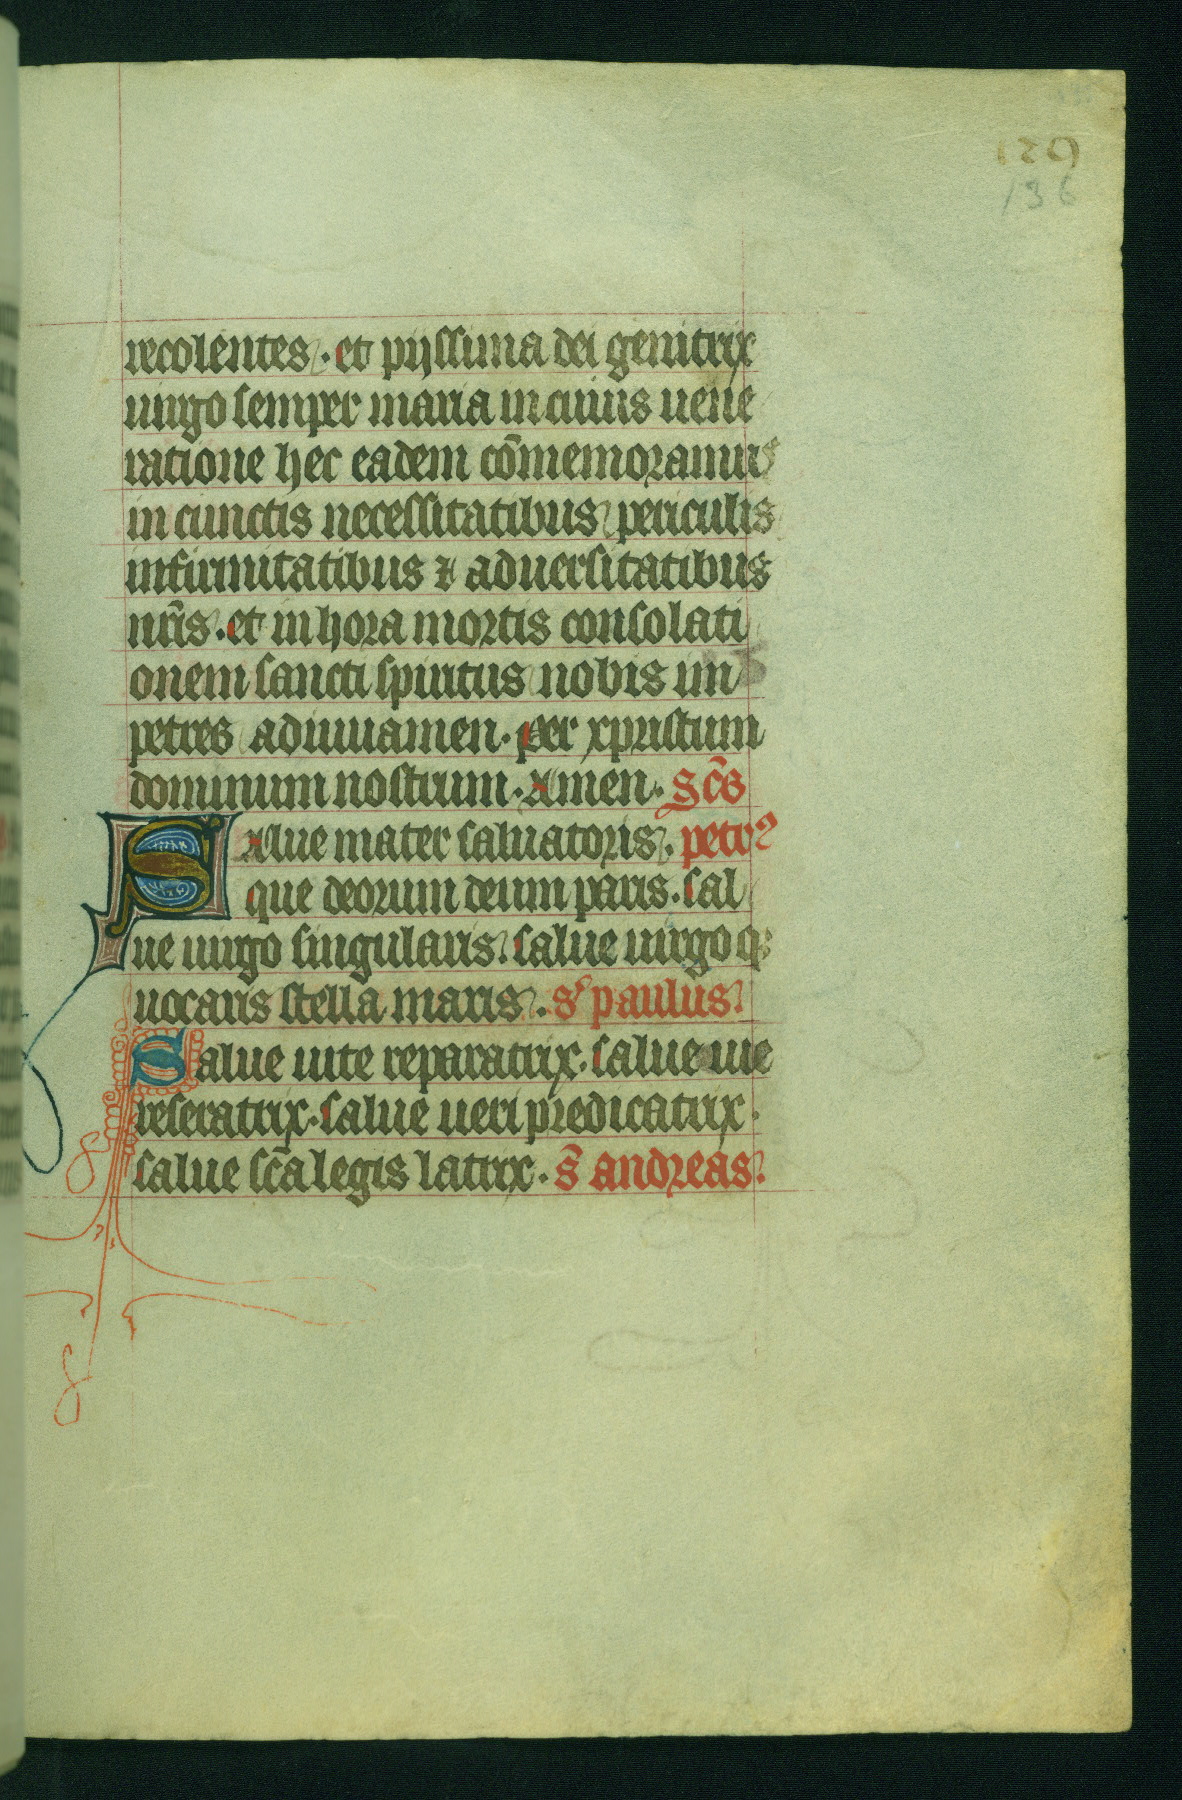 129
136
recolentes. et pijssima dei genitrix
uirgo semper maria in cuius uene
ratione hec eadem cōmemoramus
in cunctis necessitatibus periculis
infirmitatibus ⁊ aduersitatibus
nr̄is. et in hora mortis consolati
onem sancti spiritus nobis im
petres adiuuamen. per xpristum
dominum nostrum. Amen. Sc̄s
Salue mater saluatoris. petrꝰ
que deorum deum paris. sal
ue uirgo singularis. salue uirgo qꝫ
uocaris stella maris. s paulus.
Salue uite reparatrix. salue uie
reseratrix. salue ueri predicatrix.
salue sc̄a legis latrix. s̄ andreas.